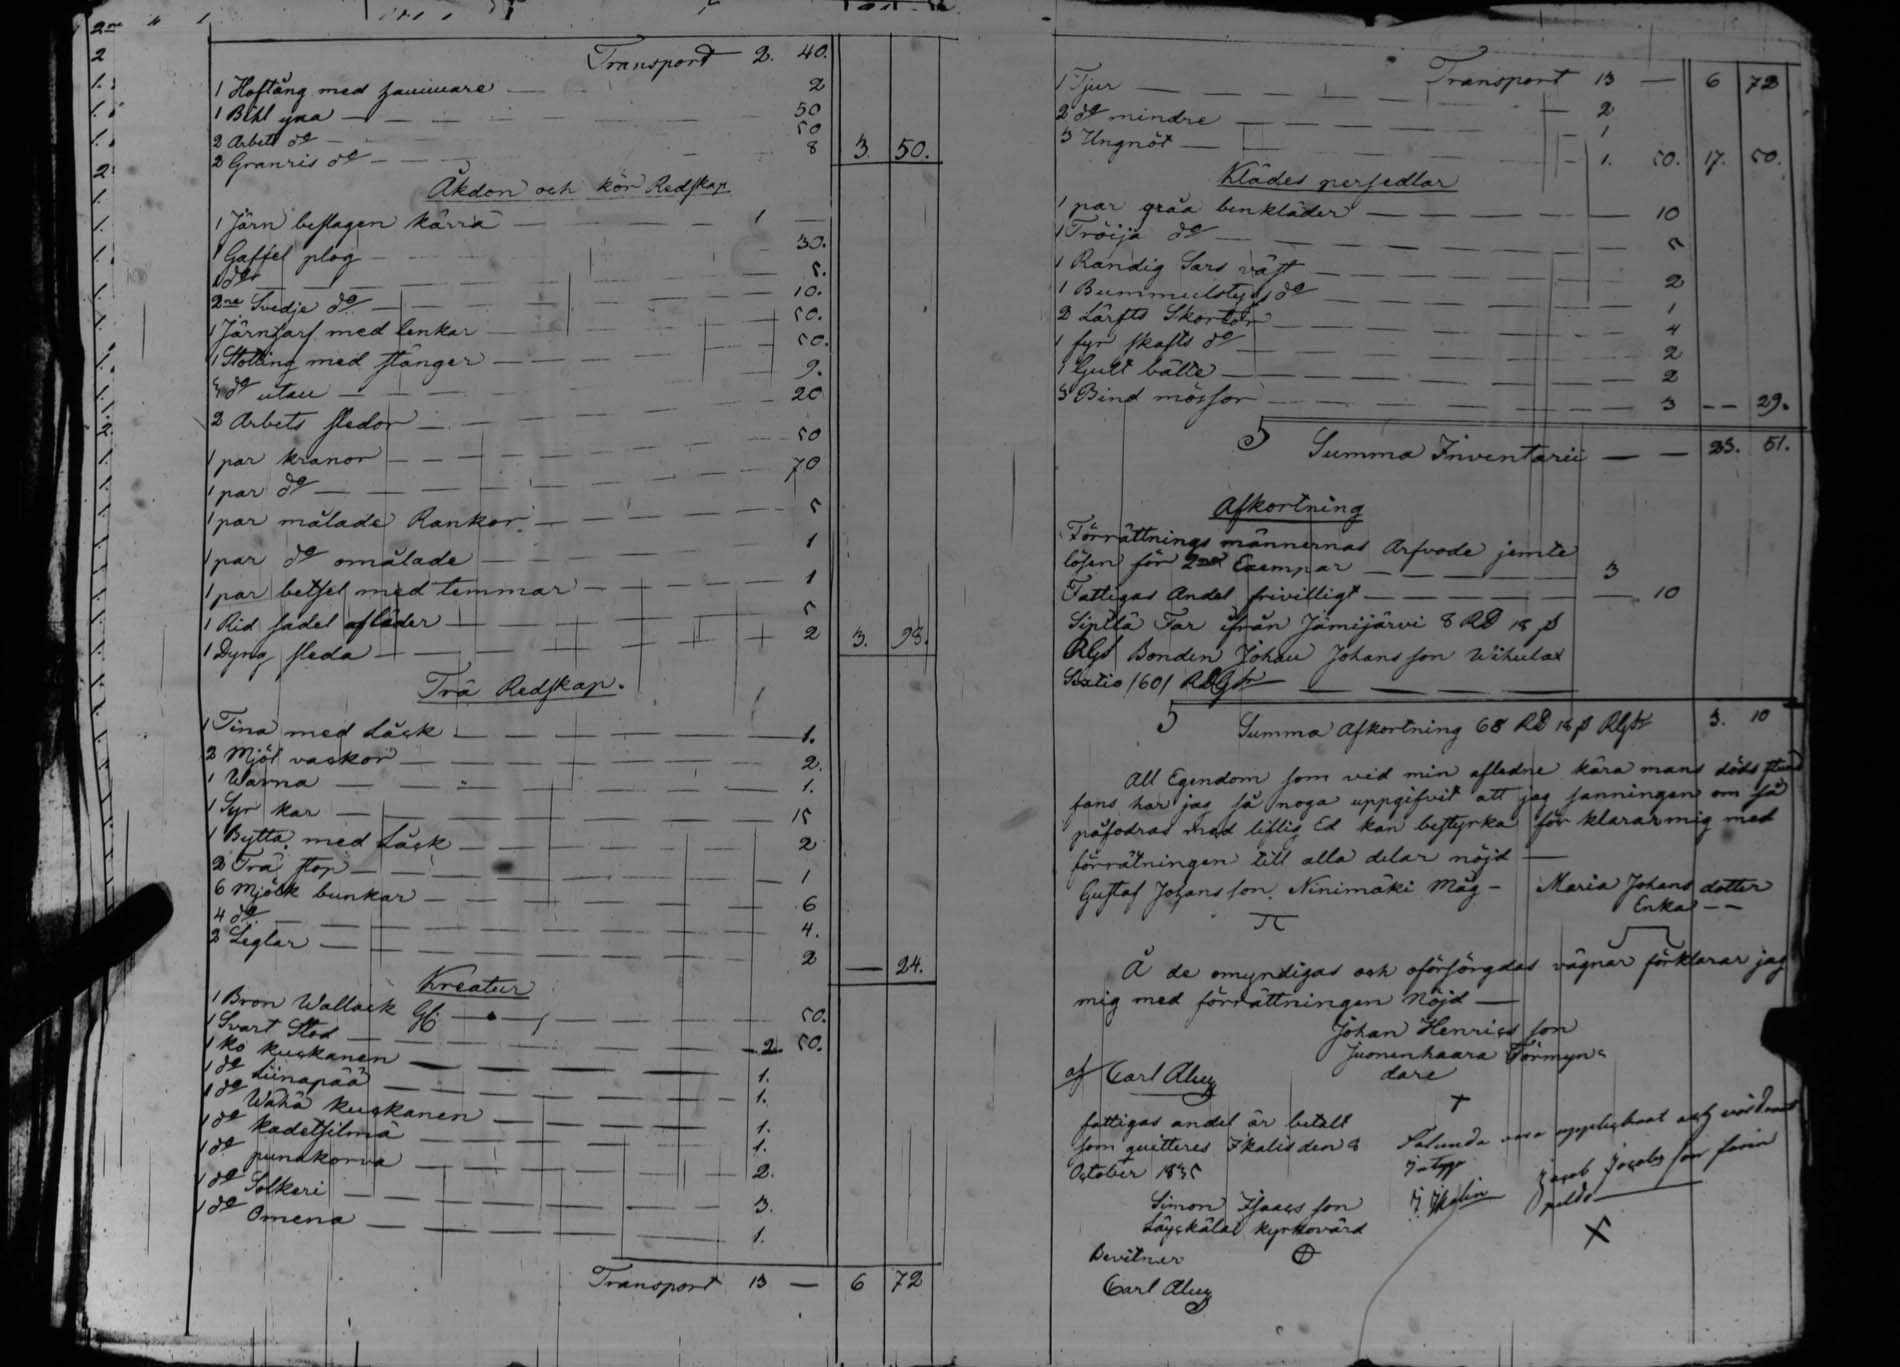 Transport 2. 40.
1 Hoftång med hammare 2
1 Bihl yxa 50
2 Arbets do 50
2 Granris do 8 3. 50.
Åkdon och kör Redskap
1 Järn beslagen kärra 1 —
1 Gaffel plog 30.
1 do 5.
2ne Svedje do 10.
1 Järnharf med lenkar 50.
1 Stötting med stänger 50.
do utan 9.
2 Arbets sledor 20
1 par kranor 50
1 par do 70
1 par målade Rankor 5
1 par do omålade 1
1 par betsel med temmar 1
1 Rid sadel af läder 5
1 Dyng sleda 2 3. 98.
Trä Redskap.
1 Tina med Låck 1.
2 Mjöl vackor 2.
1 Wanna 1.
1 Syr kar 15
1 Bytta med Låck 2
2 Trä stop 1
6 Mjölk bunkar 6
4 do 4.
2 Leglar 2 — 24.
Kreatur
1 Bron Wallack 50.
1 Svart Stod 2 50.
1 ko kuckanen 1.
1 do Liinapää 1.
1 do Wähä kuckanen 1.
1 do kadetsilmä 1.
1 do punakorva 2.
1 do Solkeri 3.
1 do Omena 1.
Transport 13 — 6 72
Transport 13 — 6 72
1 Tjur 2
2 do mindre 1
3 Ungnöt 1. 50. 17. 50.
Klädes persedlar
1 par gråa benkläder 10
1 Tröija do 5
1 Randig Sars väst 2
1 Bummulstygs do 1
2 Lärfts Skortor 4
1 fyr skafts do 2
1 Gult bälte 2
3 Bind mössor 3 — 29.
Summa Inventarii — — 23. 51.
Afkortning
Förrättnings männernas Arfvode jemte
lösen för 2ne Exempar 3
Fattigas Andel frivilligt 10
Siptlä Far ifrån Jämijärvi 8 RD 18 β
Rgs Bonden Johan Johansson Wihulax
/60/ RD
Summa Afkortning 68 RD 18 β Rgs 3. 10
All Egendom som vid min afledne kära mans döds stund
fans har jag så noga uppgifvit att jag sanningen om så
påfodras med liflig Ed kan bestyrka för klarar mig med
förrätningen till alla delar nöjd —
Gustaf Johansson Ninimäki Måg — Maria Johans dotter
Enka —
Å de omyndigas och oförsörgdas vägnar förklarar jag
mig med förrättningen Nöjd —
Johan Henrics son
Juonenhaara Förmyn=
dare
af Carl Aluz
fattigas andel är betalt
som quitteres Ikalis den 8
October 1835
Simon Isaacs son
Läyckälai kyrkovärd
Bevitner
Carl Aluz
Salunda vara upplist och värderat
intyga
Jacob Jacobs son